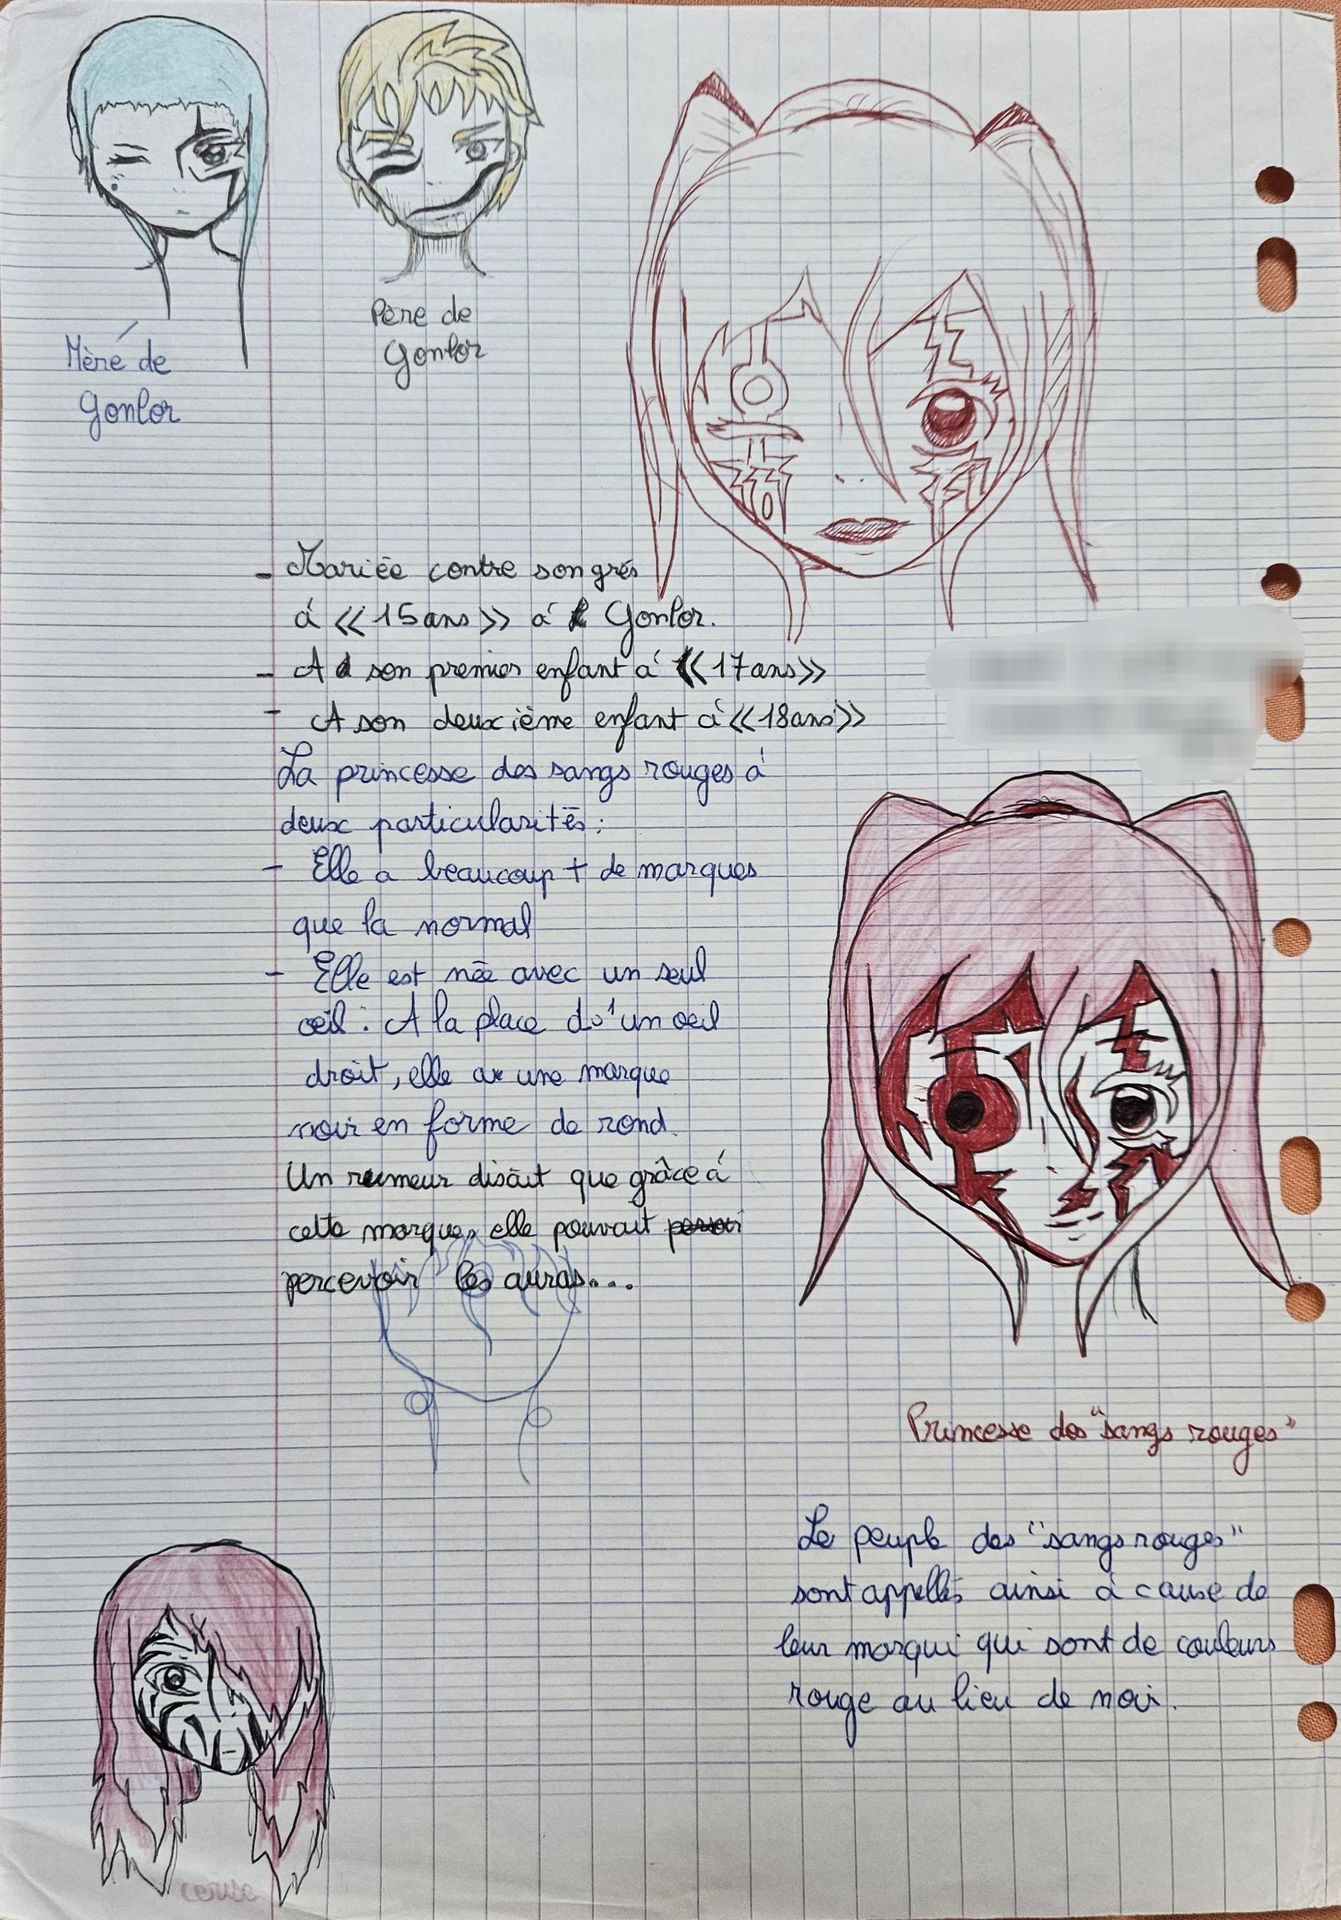 Mère de
Gonlor
Père de
Gonlor
- Mariée contre son grés
à << 15 ans >> à Gonlor.
- A son premier enfant à << 17 ans >>
- A son deuxième enfant à << 18 ans >>
La princesse des sangs rouges à
deux particularités :
- Elle a beaucoup + de marques
que la normal
- Elle est née avec un seul
oeil : A la place d'un oeil
droit, elle a une marque
noir en forme de rond.
Un rumeur disait que grâce à
cette marque, elle pouvait
percevoir les auras...
Princesse des "sangs rouges"
Le peuple des "sangs rouges"
sont appellés ainsi à cause de
leur marqui qui sont de couleurs
rouge au lieu de noir.
cerise